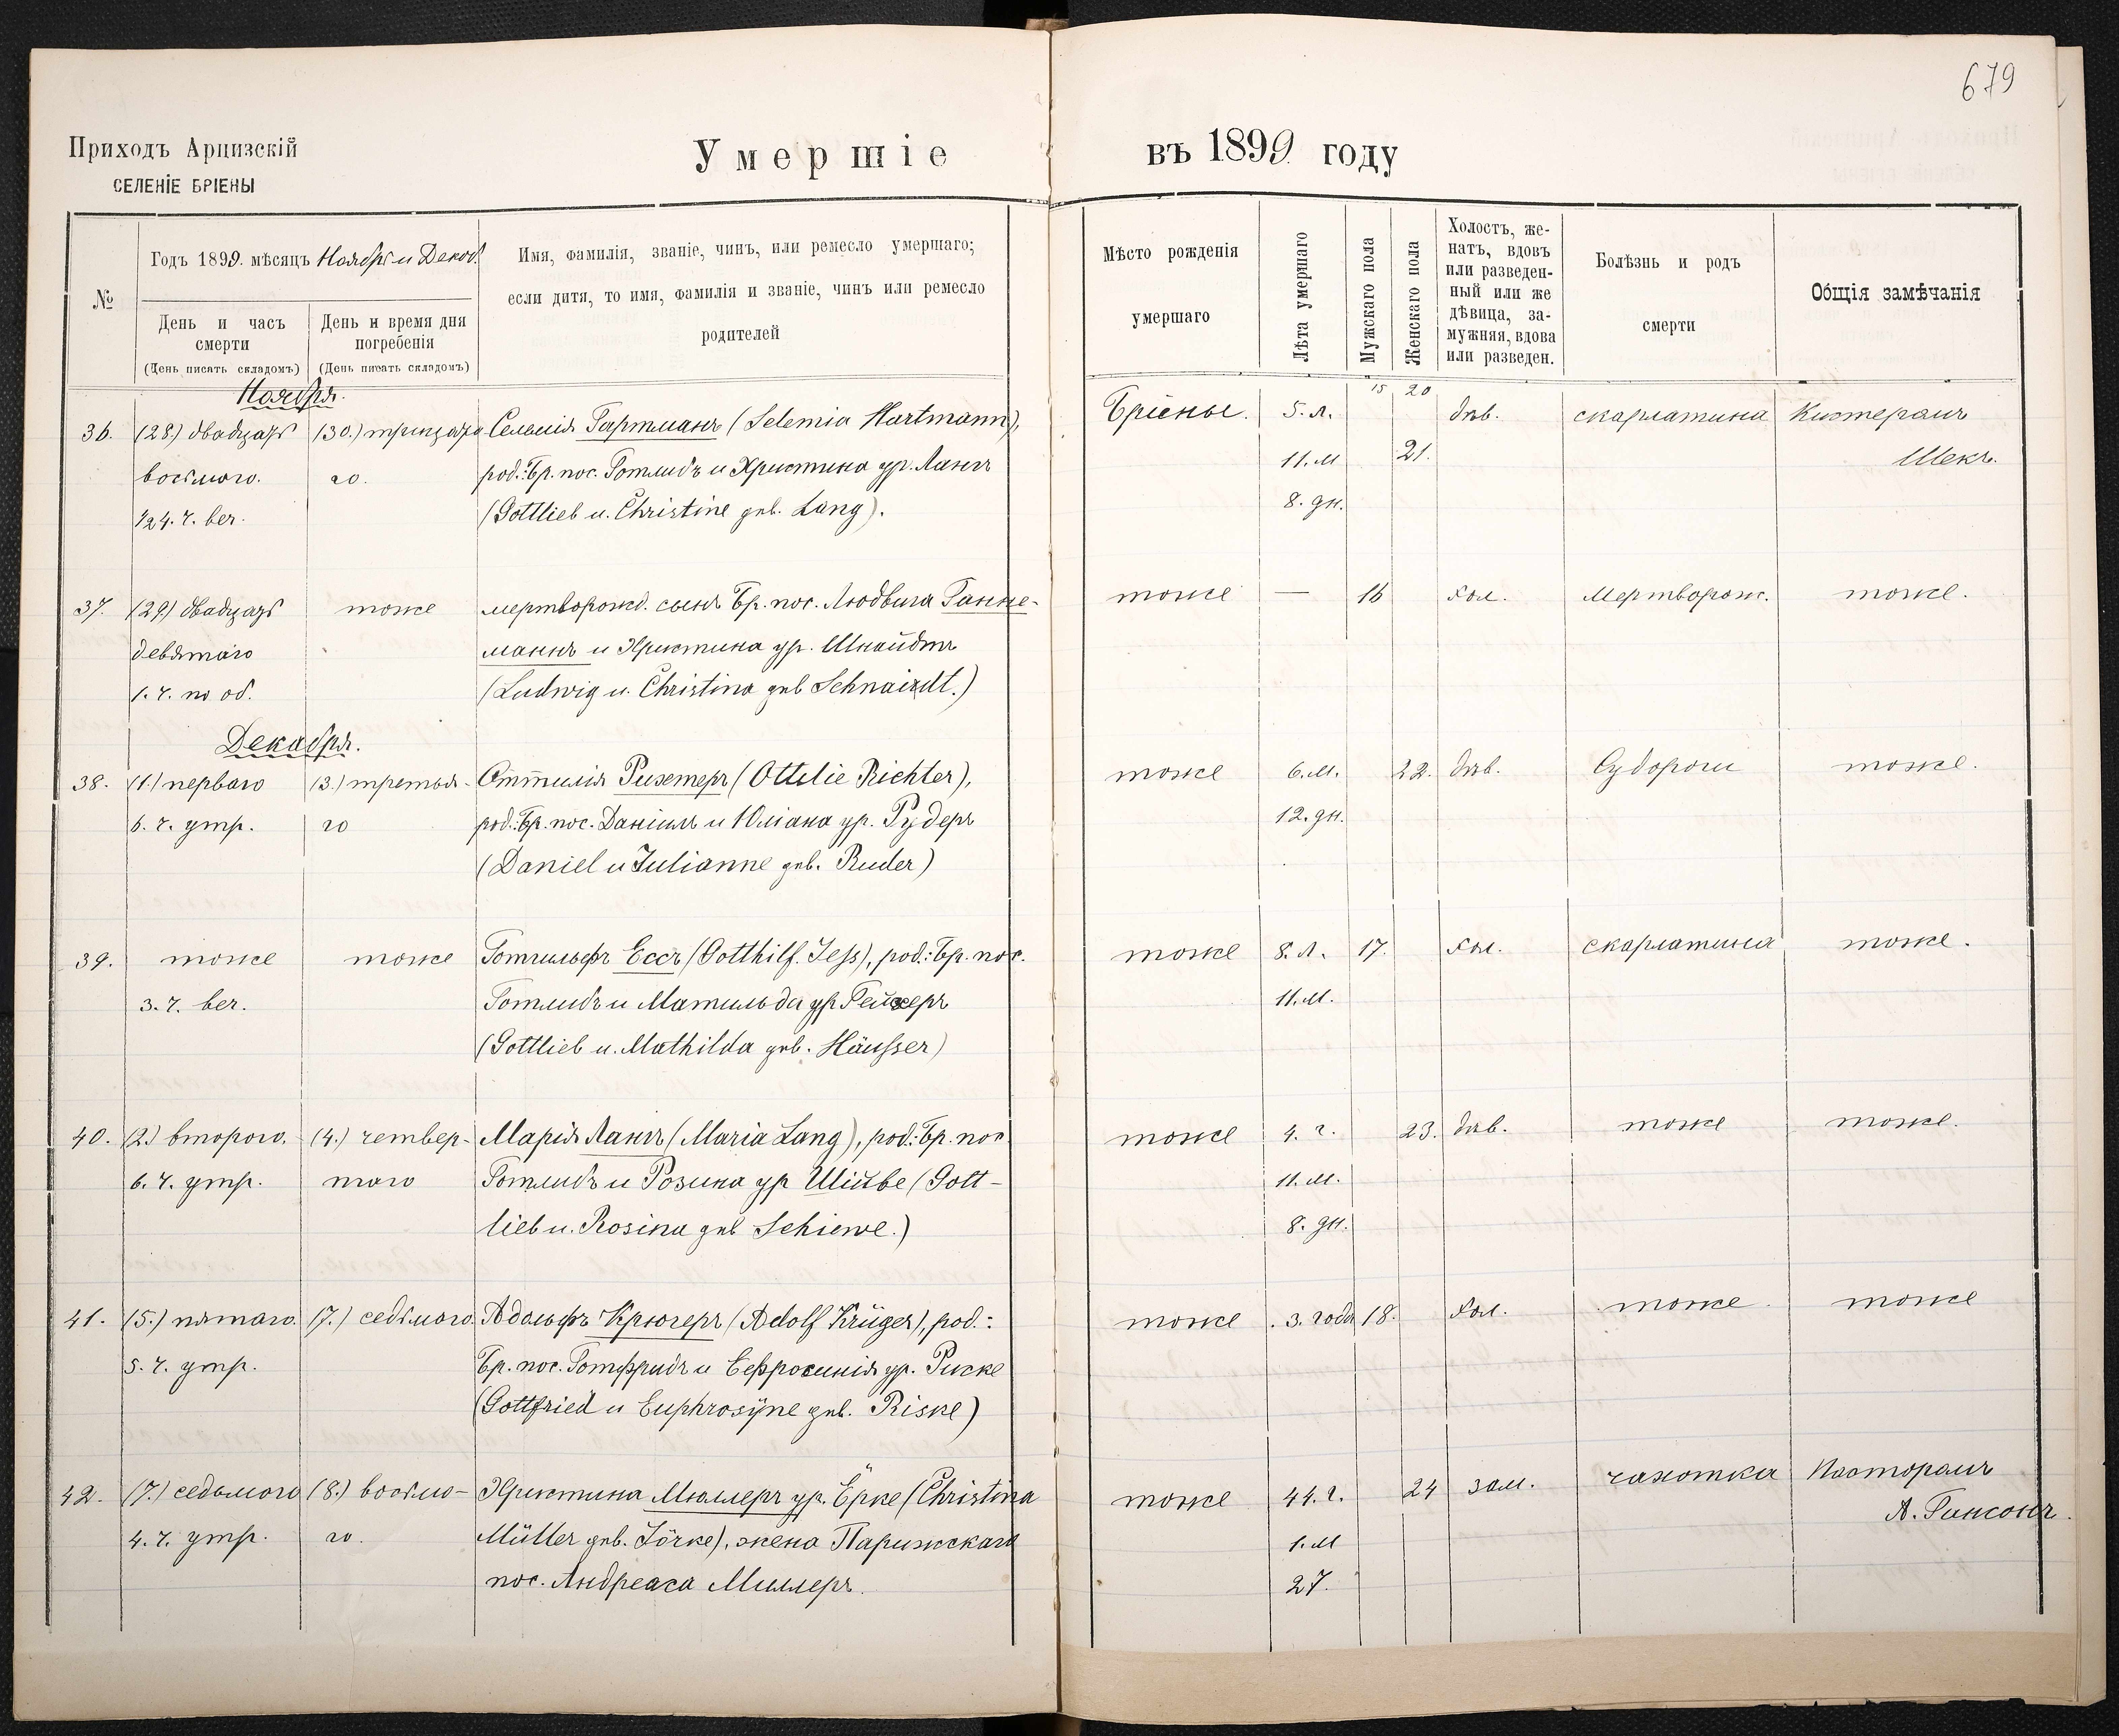 679
Приходъ Арцизскій
СЕЛЕНІЕ БРІЕНЫ
Умершіе
въ 1899. году
№
Годъ 1899. мѣсяцъ Ноябрь и Декаб.
День и часъ смерти
(День писать складомъ)
День и время дня погребенія
(День писать складомъ)
Имя, фамилія, званіе, чинъ, или ремесло умершаго;
если дитя, то имя, фамилія и званіе, чинъ или ремесло
родителей
Мѣсто рожденія
умершаго
Лѣта умершаго
Мужскаго пола
Женскаго пола
Холостъ, же-
натъ, вдовъ
или разведен-
ный или же
дѣвица, за-
мужняя, вдова
или разведен.
Болѣзнь и родъ
смерти
Общія замѣчанія
Ноября.
15 20
36. (28.) двадцать (30.) тридцата- Сельмія Гартманъ (Selemia Hartmann), Бріены. 5. л. дѣв. скарлатина Кистеромъ
восьмого. го. род.: Бр. пос. Готлибъ и Христина ур. Лангъ 11. м 21. Шекъ.
1/2 4. ч. веч. (Gottlieb u. Christine geb. Lang). 8. дн.
37. (29.) двадцать тоже мертворожд. сынъ Бр. пос. Людвига Ганне- тоже — 16 хол. Мертворож. тоже.
девятаго манъ и Христина ур. Шнайдтъ
1. ч. по об. (Ludwig u. Christina geb Schnaidt.)
Декабря.
38. (1.) перваго (3.) третья- Оттилія Рихтеръ (Ottilie Richter), тоже 6. м. 22. дѣв. Судороги тоже.
6. ч. утр. го род.: Бр. пос. Даніилъ и Юліана ур. Рудеръ 12. дн.
(Daniel u Julianne geb. Ruder)
39. тоже тоже Готгильфъ Ессъ (Gotthilf. Jeß), род.: Бр. пос. тоже 8. л. 17. хол. скарлатина тоже.
3. ч. веч. Готлибъ и Матильда ур 11. м.
(Gottlieb u. Mathilda geb. Häußer)
40. (2.) второго. (4.) четвер- Марія Лангъ (Maria Lang), род.: Бр. пос. тоже 4. г. 23. дѣв. тоже тоже.
6. ч. утр. таго Готлибъ и Розина ур Шиве (Gott- 11. м.
lieb u. Rosina geb Schiewe.) 8. дн.
41. (5.) пятаго. (7.) седьмого. Адольфъ Крюгеръ (Adolf Krüger), род.: тоже 3. года 18. хол. тоже. тоже
5. ч. утр. Бр. пос. Готфридъ и Евфросинія ур. Риске
(Gottfried u Euphrosyne geb. Riske)
42. (7.) седьмого (8.) восьмо- Христина Мюллеръ ур. Ёрке (Christina тоже 44. г. 24 зам. чахотка Пасторомъ
4. ч. утр. го. Müller geb. Jörke), жена Парижскаго 1. м А. Гансонъ.
пос. Андреаса Миллеръ. 27.